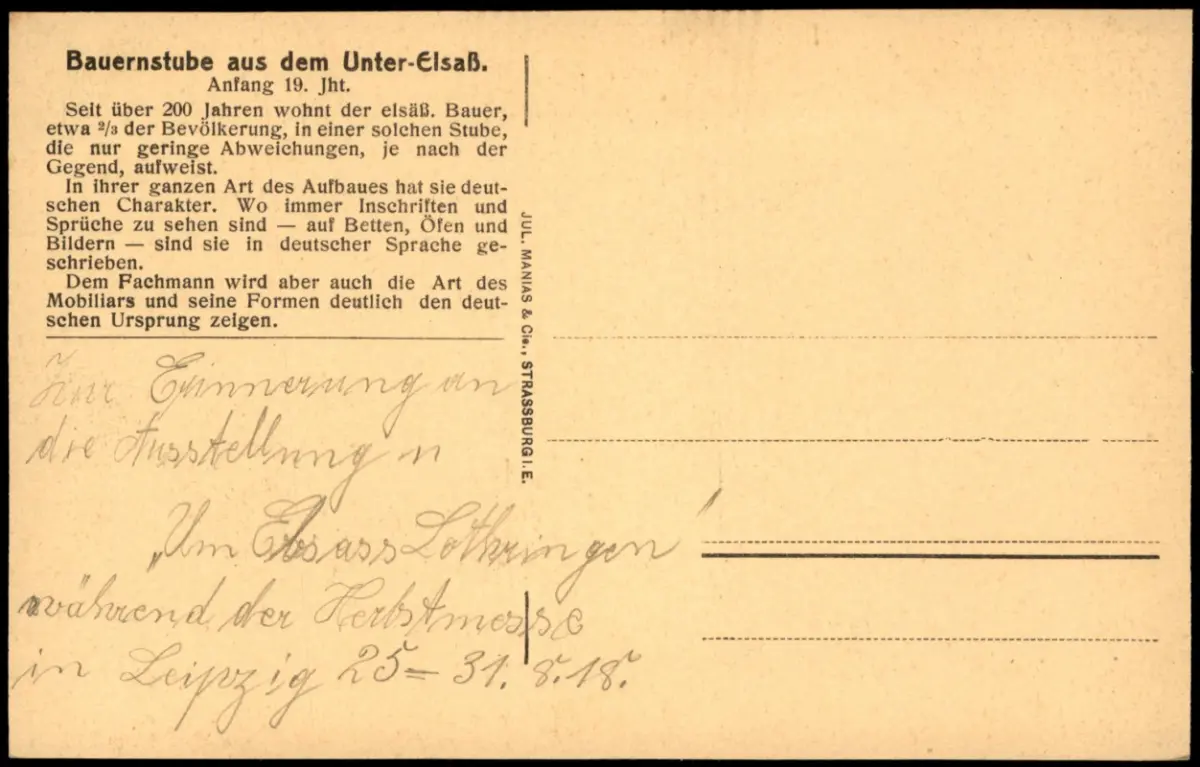 Bauernstube aus dem Unter-Elsaß.
Anfang 19. Jht.
Seit über 200 Jahren wohnt der elsäß. Bauer,
etwa 2/3 der Bevölkerung, in einer solchen Stube,
die nur geringe Abweichungen, je nach der
Gegend, aufweist.
In ihrer ganzen Art des Aufbaues hat sie deut-
schen Charakter. Wo immer Inschriften und
Sprüche zu sehen sind — auf Betten, Öfen und
Bildern — sind sie in deutscher Sprache ge-
schrieben.
Dem Fachmann wird aber auch die Art des
Mobiliars und seine Formen deutlich den deut-
schen Ursprung zeigen.
JUL. MANIAS & Cie., STRASSBURG I. E.
Zur Erinnerung an
die Ausstellung
„Um Elsass Lothringen
während der Herbstmesse
in Leipzig 25 = 31. 8. 18.